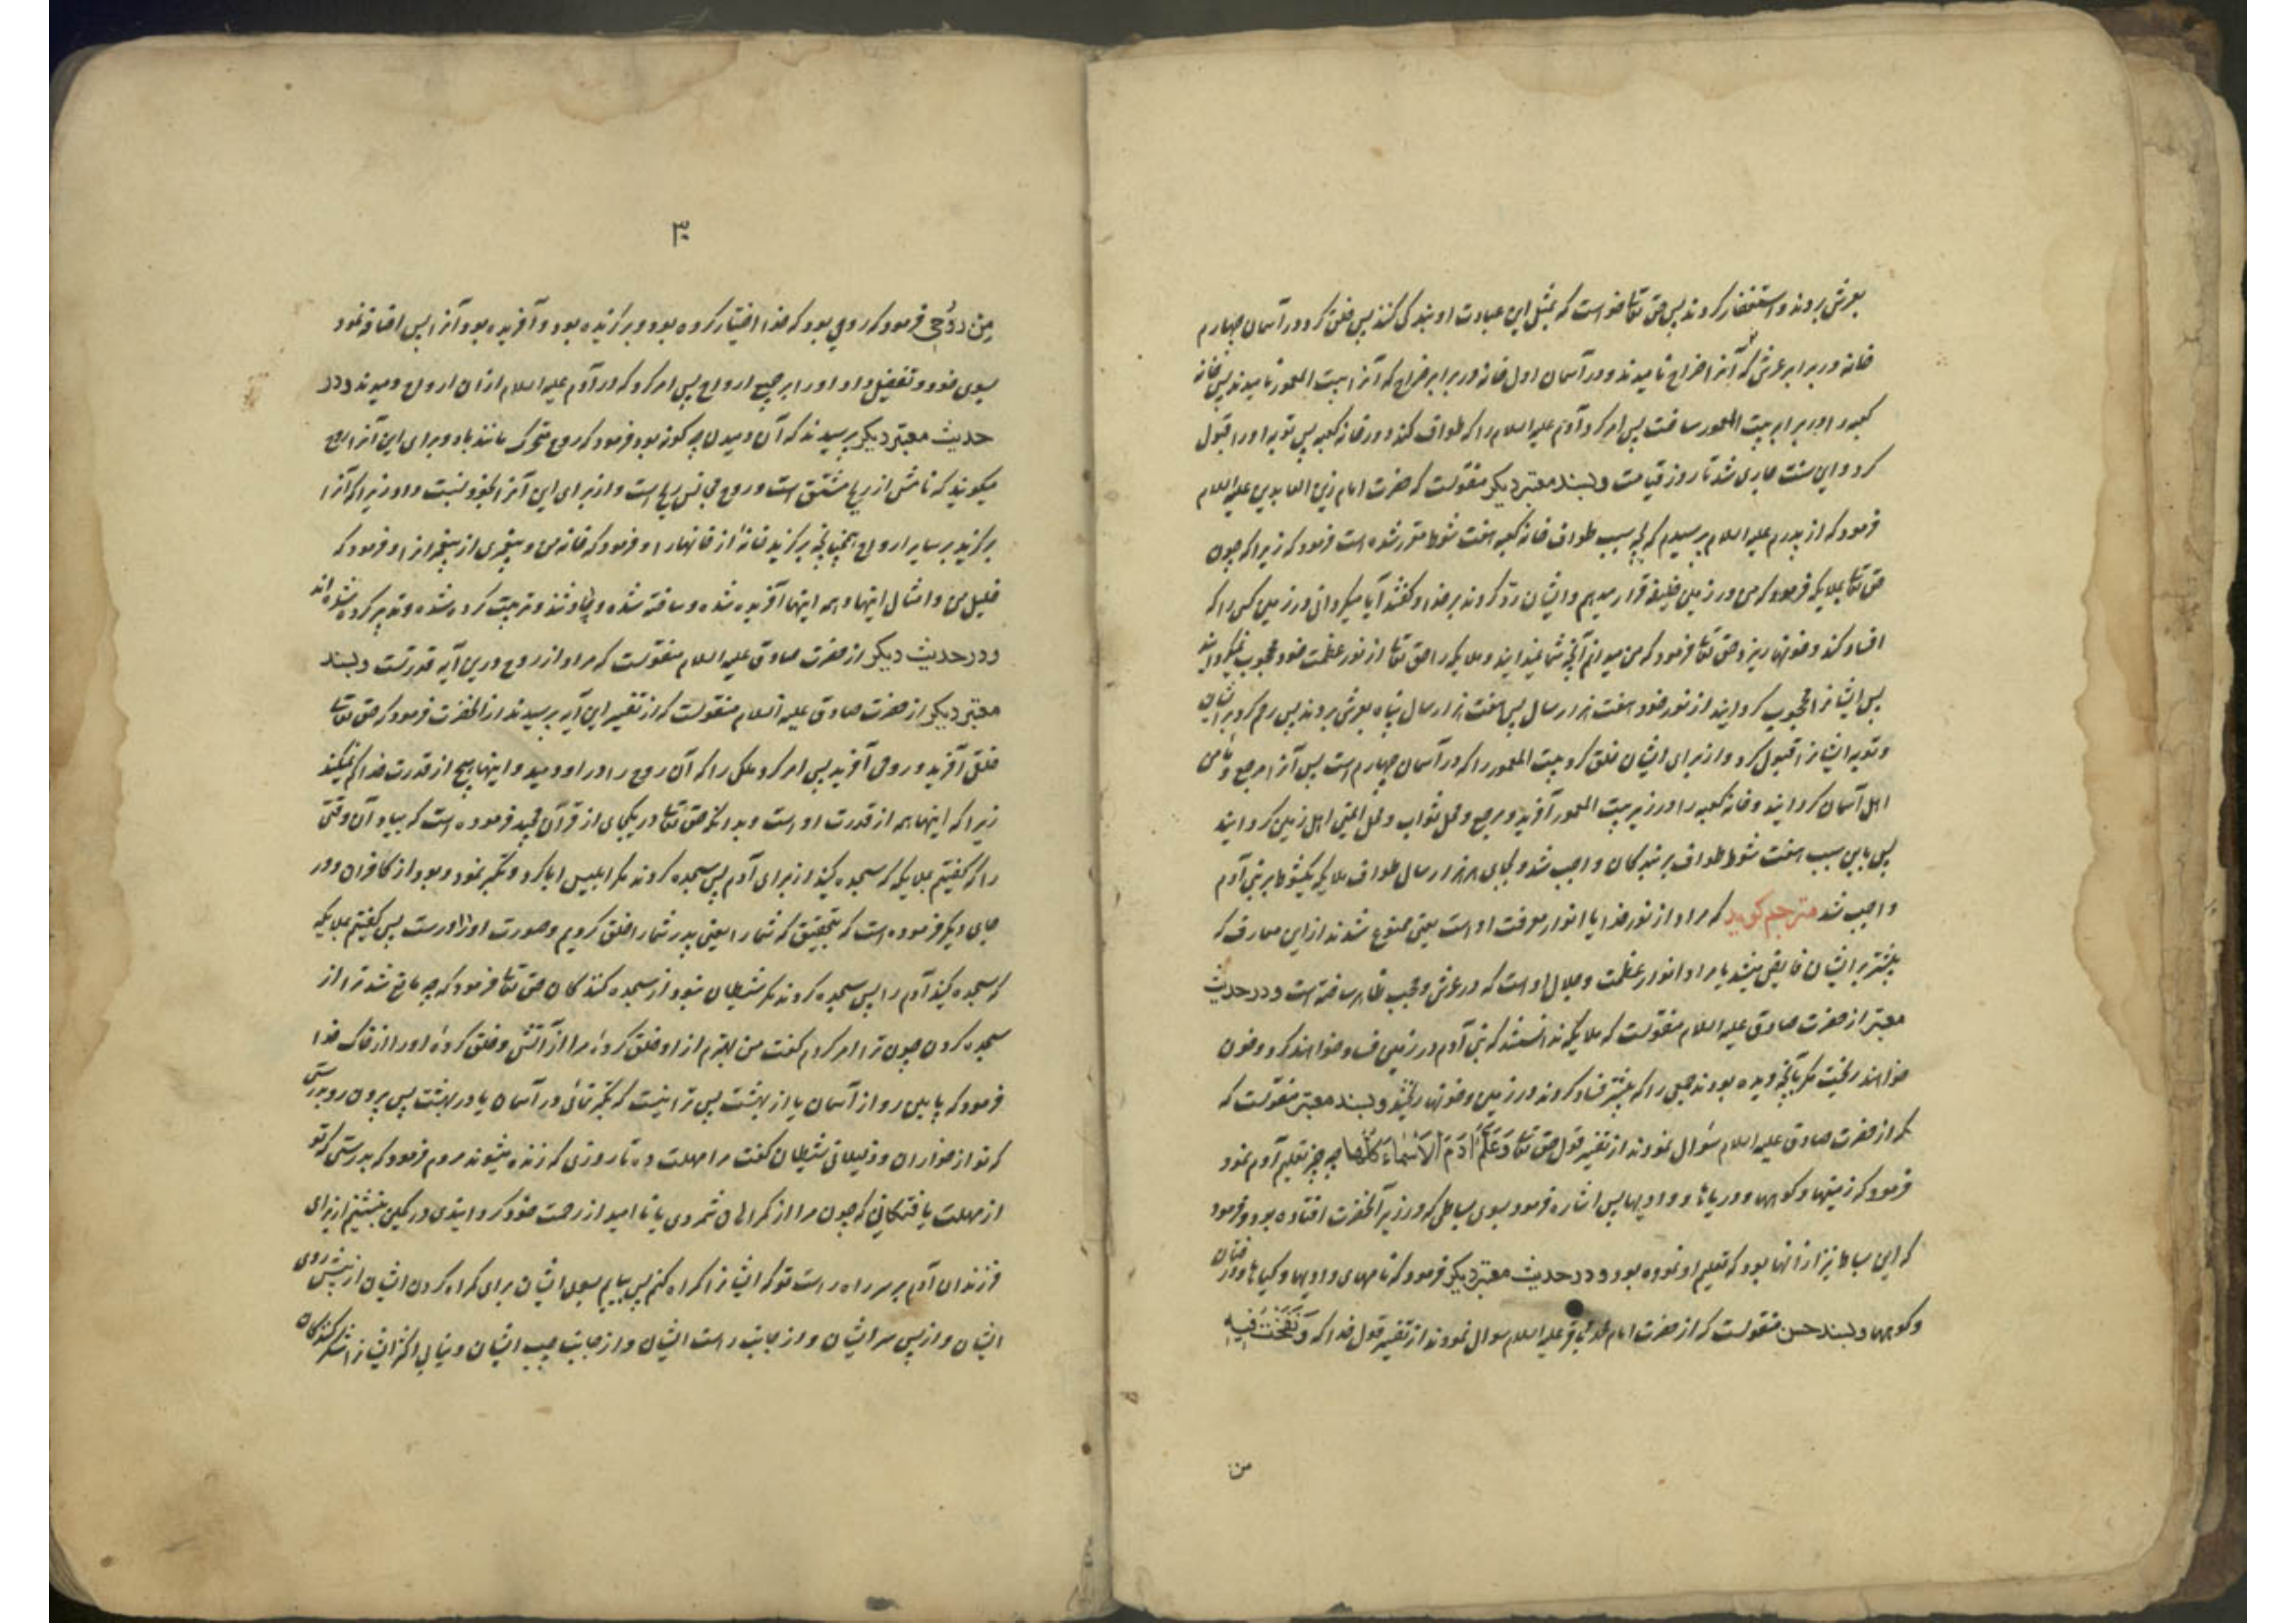 بعرش بردند و استغفار کردند پس حق تعالی خواست که بمثل این عبادت او بندگی کنند پس خلق کرد در آسمان چهارم
خانه در برابر عرش که آنرا ضراح نامیدند و در آسمان اول خانه در برابر ضراح که آنرا بیت المعمور نامیدند پس خانه
کعبه را در برابر بیت المعمور ساخت پس امر کرد آدم علیه السلام را که طواف کند در خانه کعبه پس توبه او را قبول
کرد و این سنت جاری شد تا روز قیامت و بسند معتبر دیکر منقولست که حضرت امام زین العابدین علیه السلام
فرمود که از پدرم علیه السلام پرسیدم که بچه سبب طواف خانه کعبه هفت شوط مقرر شده است فرمود که زیرا که چون
حق تعالی بملایکه فرمود که من در زمین خلیفه قرار میدهم و ایشان رد کردند بر خدا و گفتند آیا میکردانی در زمین کسی را که
افساد کند و خونها ریزد حق تعالی فرمود که من میدانم آنچه شما نمیدانید و ملایکه را حق تعالی از نور عظمت خود محجوب نمیکردانید
پس ایشانرا محجوب کردانید از نور خود هفت هزار سال پس هفت هزار سال پناه بعرش بردند پس رحم کرد بر ایشان
و توبه ایشانرا قبول کرد و از برای ایشان خلق کرد بیت المعمور را که در آسمان چهارم است پس آنرا مرجع و مامن
اهل آسمان کردانید و خانه کعبه را در زیر بیت المعمور آفرید و مرجع و محل ثواب و محل ایمنی اهل زمین کردانید
پس باین سبب هفت شوط طواف بر بندکان واجب شد و بجای هر هزار سال طواف ملایکه یکشوط بر بنی آدم
واجب شد مترجم کوید که مراد از نور خدا یا انوار معرفت او است یعنی ممنوع شدند از این معارف که
بیشتر بر ایشان فایض میشد یا مراد انوار عظمت و جلال او است که در عرش و حجب ظاهر ساخته است و در حدیث
معتبر از حضرت صادق علیه السلام منقولست که ملایکه ندانستند که بنی آدم در زمین فساد خواهند کرد و خون
خواهند ریخت مکر بآنچه دیده بودند جمعی را که بیشتر فساد کردند در زمین و خونها ریختند و بسند معتبر منقولست که
که از حضرت صادق علیه السلام سؤال نمودند از تفسیر قول حق تعالی وَعَلَّمَ آدَمَ الْأَسْمَاءَ كُلَّهَا چه چیز تعلیم آدم نمود
فرمود که زمینها و کوهها و دریاها و وادیها پس اشاره فرمود بسوی بساطی که در زیر آنحضرت افتاده بود و فرمود
که این بساط نیز از آنها بود که تعلیم او نموده بود و در حدیث معتبر دیکر فرمود که نامهای وادیها و کیاها و درختان
و کوهها و بسند حسن منقولست که از حضرت امام محمد باقر علیه السلام سوال نمودند از تفسیر قول خدا که وَنَفَخْتُ فِيهِ
من
۳۰
مِنْ رُوحِي فرمود که روحی بود که خدا اختیار کرده بود و برکزیده بود و آفریده بود آنرا پس اضافه نمود
بسوی خود و تفضیل داد او را بر جمیع ارواح پس امر کرد که در آدم علیه السلام از آن ارواح دمیدند و در
حدیث معتبر دیکر پرسیدند که آن دمیدن چه کونه بود فرمود که روح متحرک مانند باد و برای این آنرا روح
میکویند که نامش از ریح مشتق است و روح مجانس ریح است و از برای این آنرا بخود نسبت داد زیرا که آنرا
برکزید بر سایر ارواح همچنانچه برکزید خانهٔ از خانها را و فرمود که خانه من و پیغمبری از پیغمبران را و فرمود که
خلیل من و امثال اینها و همه اینها آفریده شده و ساخته شده و حادثند و تربیت کرده شده و تدبیر کرده شده اند
و در حدیث دیکر از حضرت صادق علیه السلام منقولست که مراد از روح درین آیه قدرتست و بسند
معتبر دیکر از حضرت صادق علیه السلام منقولست که از تفسیر این آیه پرسیدند از آنحضرت فرمود که حق تعالی
خلقی آفرید و روحی آفرید پس امر کرد ملکی را که آن روح را در او دمید و اینها هیچ از قدرت خدا کم نمیکند
زیرا که اینها همه از قدرت او است و بدانکه حق تعالی در یکجای از قرآن مجید فرموده است که بیاد آن وقتی
را که گفتیم بملایکه که سجده کنید از برای آدم پس سجده کردند مکر ابلیس ابا کرد و تکبر نمود و بود از کافران و در
جای دیکر فرموده است که بتحقیق که شما را یعنی پدر شما را خلق کردیم و صورت او را درست پس گفتیم بملایکه
که سجده کنید آدم را پس سجده کردند مکر شیطان نبود از سجده کنندکان حق تعالی فرمود که چه مانع شد ترا از
سجده کردن چون ترا امر کردم گفت من بهترم از او خلق کردهٔ مرا از آتش و خلق کردهٔ او را از خاک خدا
فرمود که پایین رو از آسمان یا از بهشت پس ترا نیست که تکبر نمائی در آسمان یا در بهشت پس بیرون رو بدرستی
که تو از خواران و ذلیلانی شیطان گفت مرا مهلت ده تا روزی که زنده میشوند مردم فرمود که بدرستی که تو
از مهلت یافتکانی که چون مرا از گمراهان شمردی یا ناامید از رحمت خود کردانیدی در کمین بنشینم از برای
فرزندان آدم بر سر راه راست تو که ایشانرا گمراه کنم پس بیایم بسوی ایشان برای گمراه کردن ایشان از پیش روی
ایشان و از پس سر ایشان و از جانب راست ایشان و از جانب چپ ایشان و نیابی اکثر ایشانرا شکر کنندکان